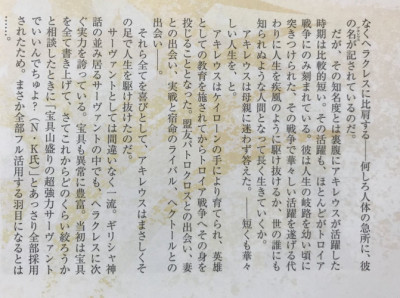 なくヘラクレスに比肩する――何しろ人体の急所に、彼
の名が記されているのだ。
だが、その知名度とは裏腹にアキレウスが活躍した
時期は比較的短い。その活躍も、ほとんどがトロイア
戦争にのみ刻まれている。彼は人生の岐路を幼い頃に
突きつけられた。その戦争で華々しい活躍を遂げる代
わりに人生を疾風のように駆け抜けるか、世の誰にも
知られぬような人間となって長く生きていくか。
アキレウスは母親に迷わず答えた。――短くも華々
しい人生を、と。
アキレウスはケイローンの手により育てられ、英雄
としての教育を施されてからトロイア戦争へその身を
投じることとなった。盟友パトロクロスとの出会い、妻
との出会い、実戦と宿命のライバル、ヘクトールとの
出会い――。
それら全てを喜びとして、アキレウスはまさしくそ
の足で人生を駆け抜けたのだ。
サーヴァントとしては間違いなく一流。ギリシャ神
話の並み居るサーヴァントの中でも、ヘラクレスに次
ぐ実力を誇っている。宝具も異常に豊富。当初は宝具
を全て書き上げて、さてこれからどのくらい絞ろうか
と相談したときに「宝具山盛りの超強力サーヴァント
でいいんでちゅよ？（Ｎ・Ｋ氏）」とあっさり全部採用
されたため。まさか全部フル活用する羽目になるとは
……。